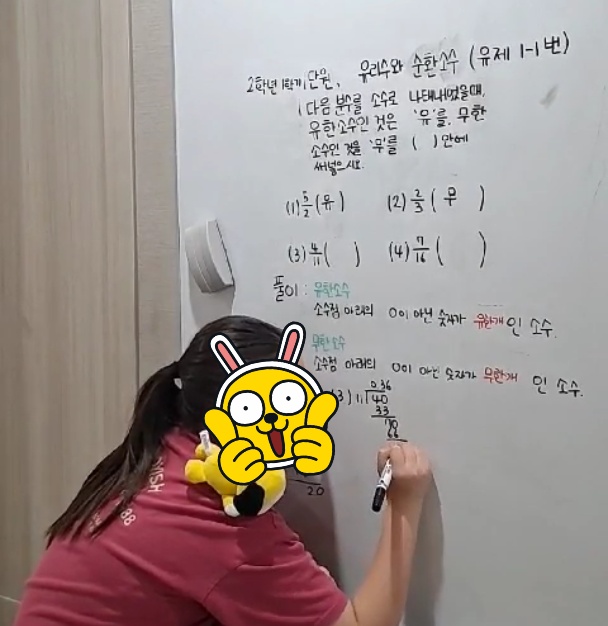 2학년 1학기 1단원, 유리수와 순환소수 (유제 1-1번)
다음 분수를 소수로 나타내었을때,
유한소수인 것은 '유'를, 무한
소수인 것을 '무'를 ( ) 안에
써넣으시오.
(1) 5/2 (유) (2) 2/3 (무 )
(3) 4/11 ( ) (4) 7/16 ( )
풀이 : 유한소수
소수점 아래의 0이 아닌 숫자가 유한개 인 소수.
무한소수
소수점 아래의 0이 아닌 숫자가 무한개 인 소수.
3) 0.36
11 40
33
70
66
20
88